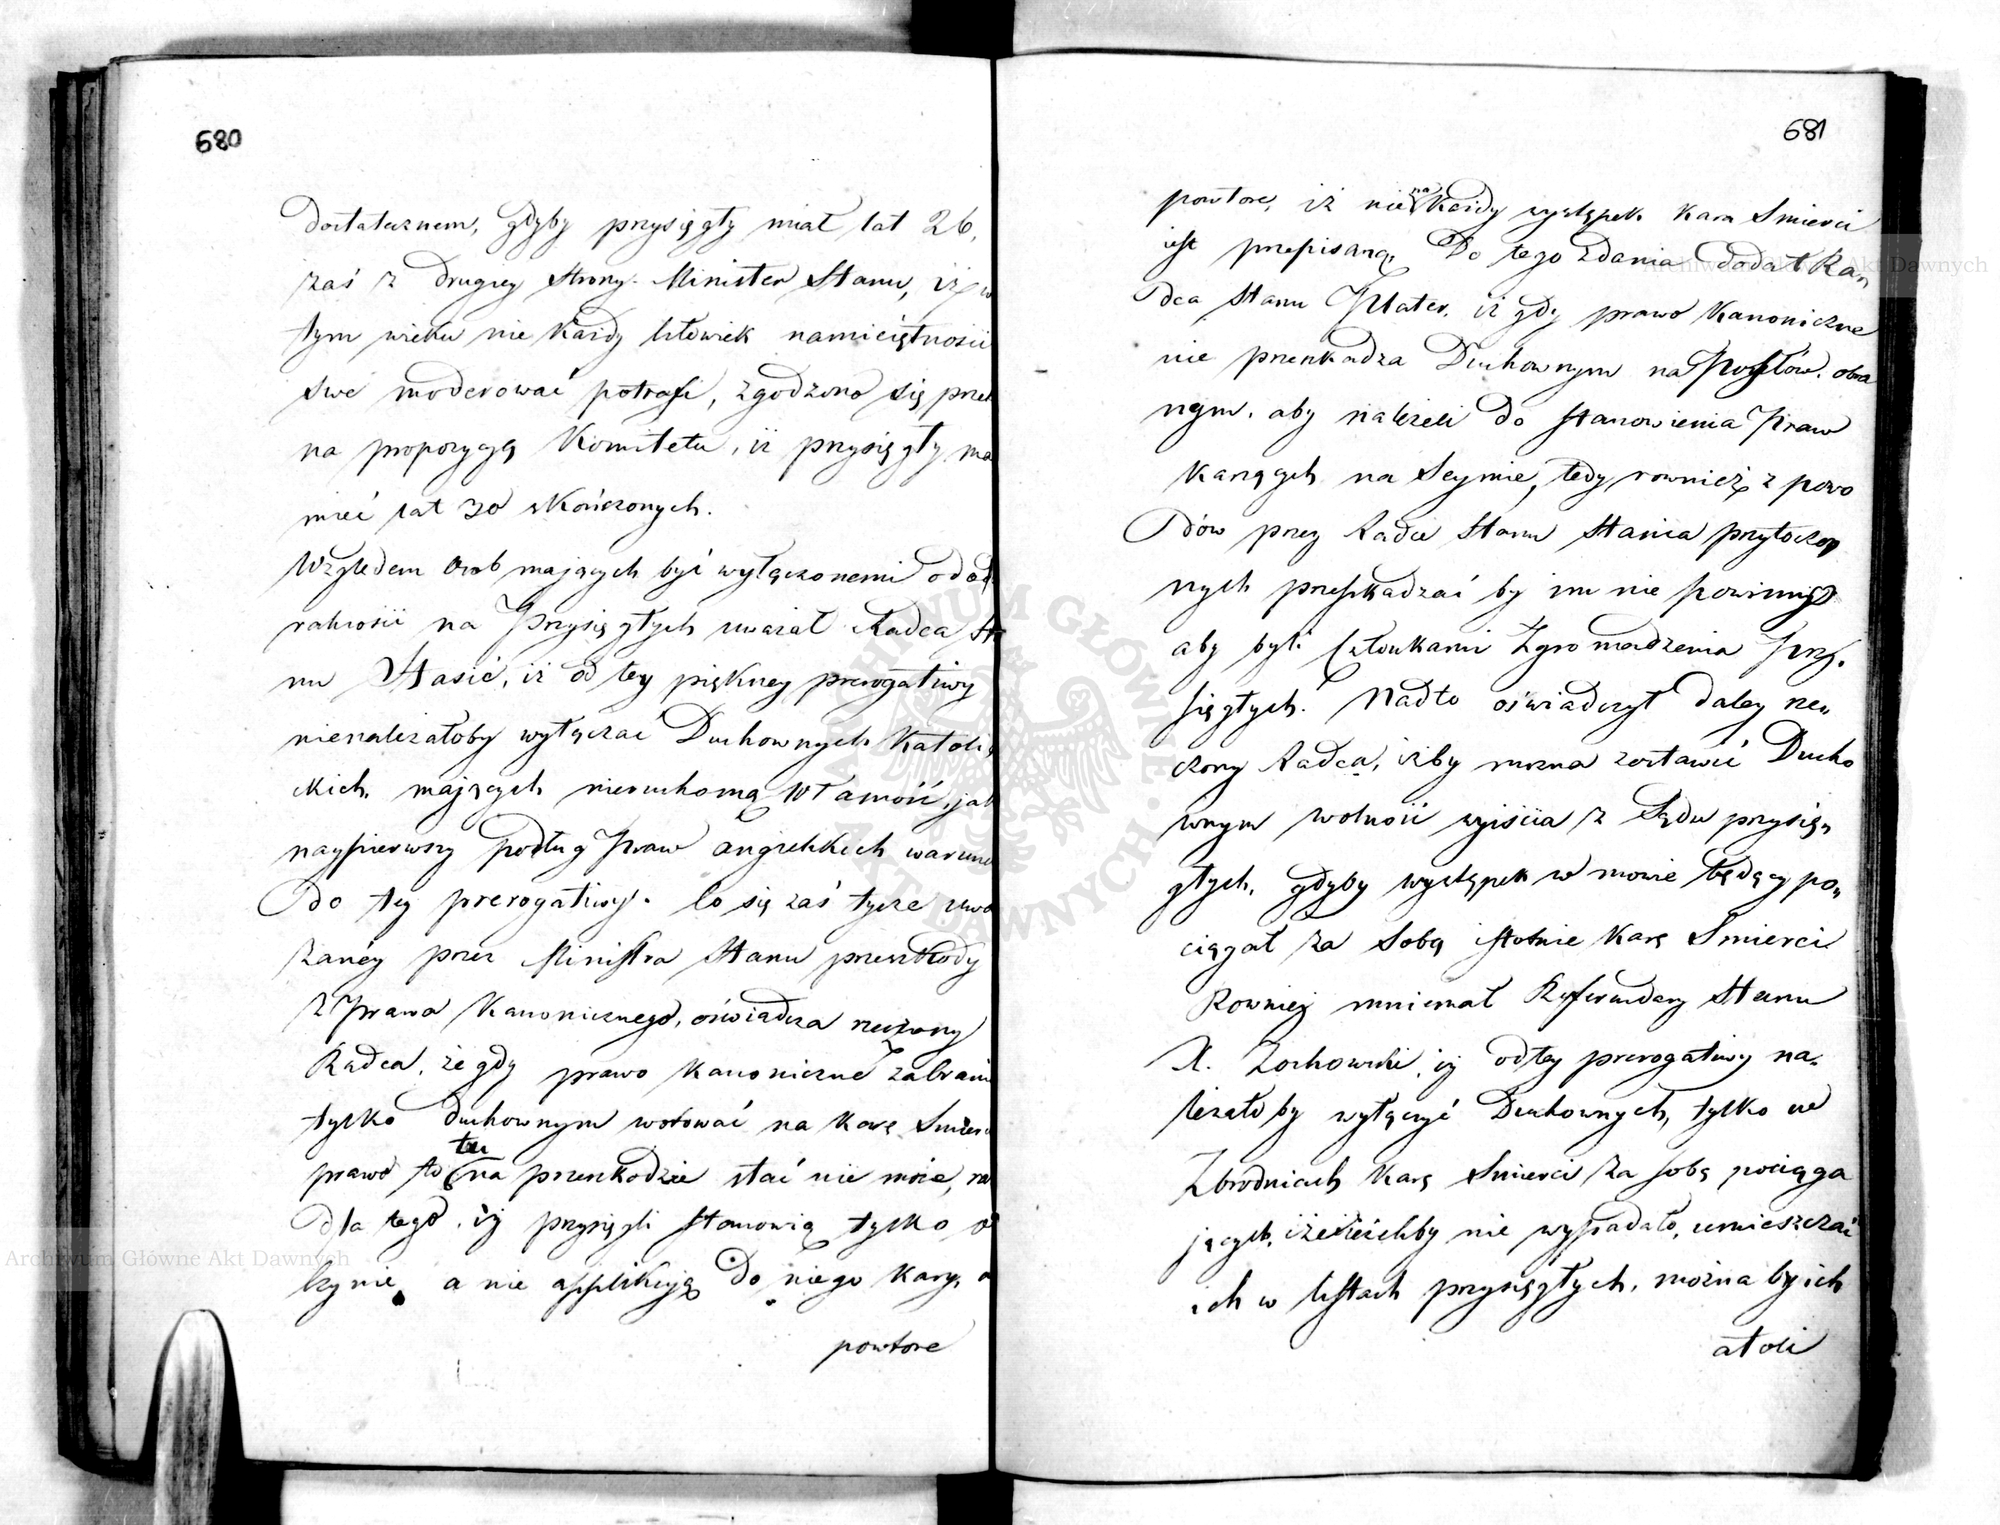 680
dostatecznem, gdyby przysięgły miał lat 26,
zaś z drugiey strony Minister Stanu, iż w
tym wieku nie każdy człowiek namiętności
swe moderować potrafi, zgodzono się prze
na propozycyą Komitetu, iż przysięgły ma
mieć lat 30 skończonych.
Względem osob maiących być wyłączonemi od ob
ralności na Przysięgłych uważał Radca Sta
nu Stasic, iż od tey piękney prerogatiwy
nienależałoby wyłączać Duchownych Katoli,
ckich, maiących nieruchomą własność, jak
naypierwszy podług Praw angielskich warune
do tey prerogatiwy. Co się zaś tycze uwa
żanéy przez Ministra Stanu przeszkody
z Prawa Kanonicznego, oświadcza rzeczony
Radca, że gdy prawo kanoniczne zabrania
tylko duchownym wotować na karę Smierci
prawo to tu na przeszkodzie stać nie może, raz
dla tego, iż przysięgli stanowią tylko o
czynie, a nie applikuią do niego kary, a
powtore
681
powtore, iż nie na każdy występek kara Smierci
iest przepisaną. Do tego zdania dodał Ra,
dca Stanu Plater, iż gdy prawo Kanoniczne
nie przeszkadza Duchownym na Posłów obra
nym, aby należeli do stanowienia Praw
karzących na Seymie, tedy rownież z powo
dów przez Radcę Stanu Stasica przytoczo
nych przeszkadzać by im nie powinny
aby byli Członkami Zgromadzenia Przy,
sięgłych. Nadto oświadczył daley rze,
czony Radca, iżby można zostawić Ducho
wnym wolność wyiścia z Sądu przysię,
głych, gdyby występek w mowie będący po,
ciągał za Sobą istotnie karę Smierci
Rownież mniemał Referendarz Stanu
X. Zochowski, iż od tey prerogatiwy na,
leżało by wyłączyć Duchownych, tylko we
Zbrodniach karę Smierci za sobą pociąga
iących, iżeli by nie wypadało, umieszczać
ich w listach przysięgłych, można by ich
atoli
Archiwum Główne Akt Dawnych
Archiwum Główne Akt Dawnych
ARCHIWUM GŁÓWNE AKT DAWNYCH